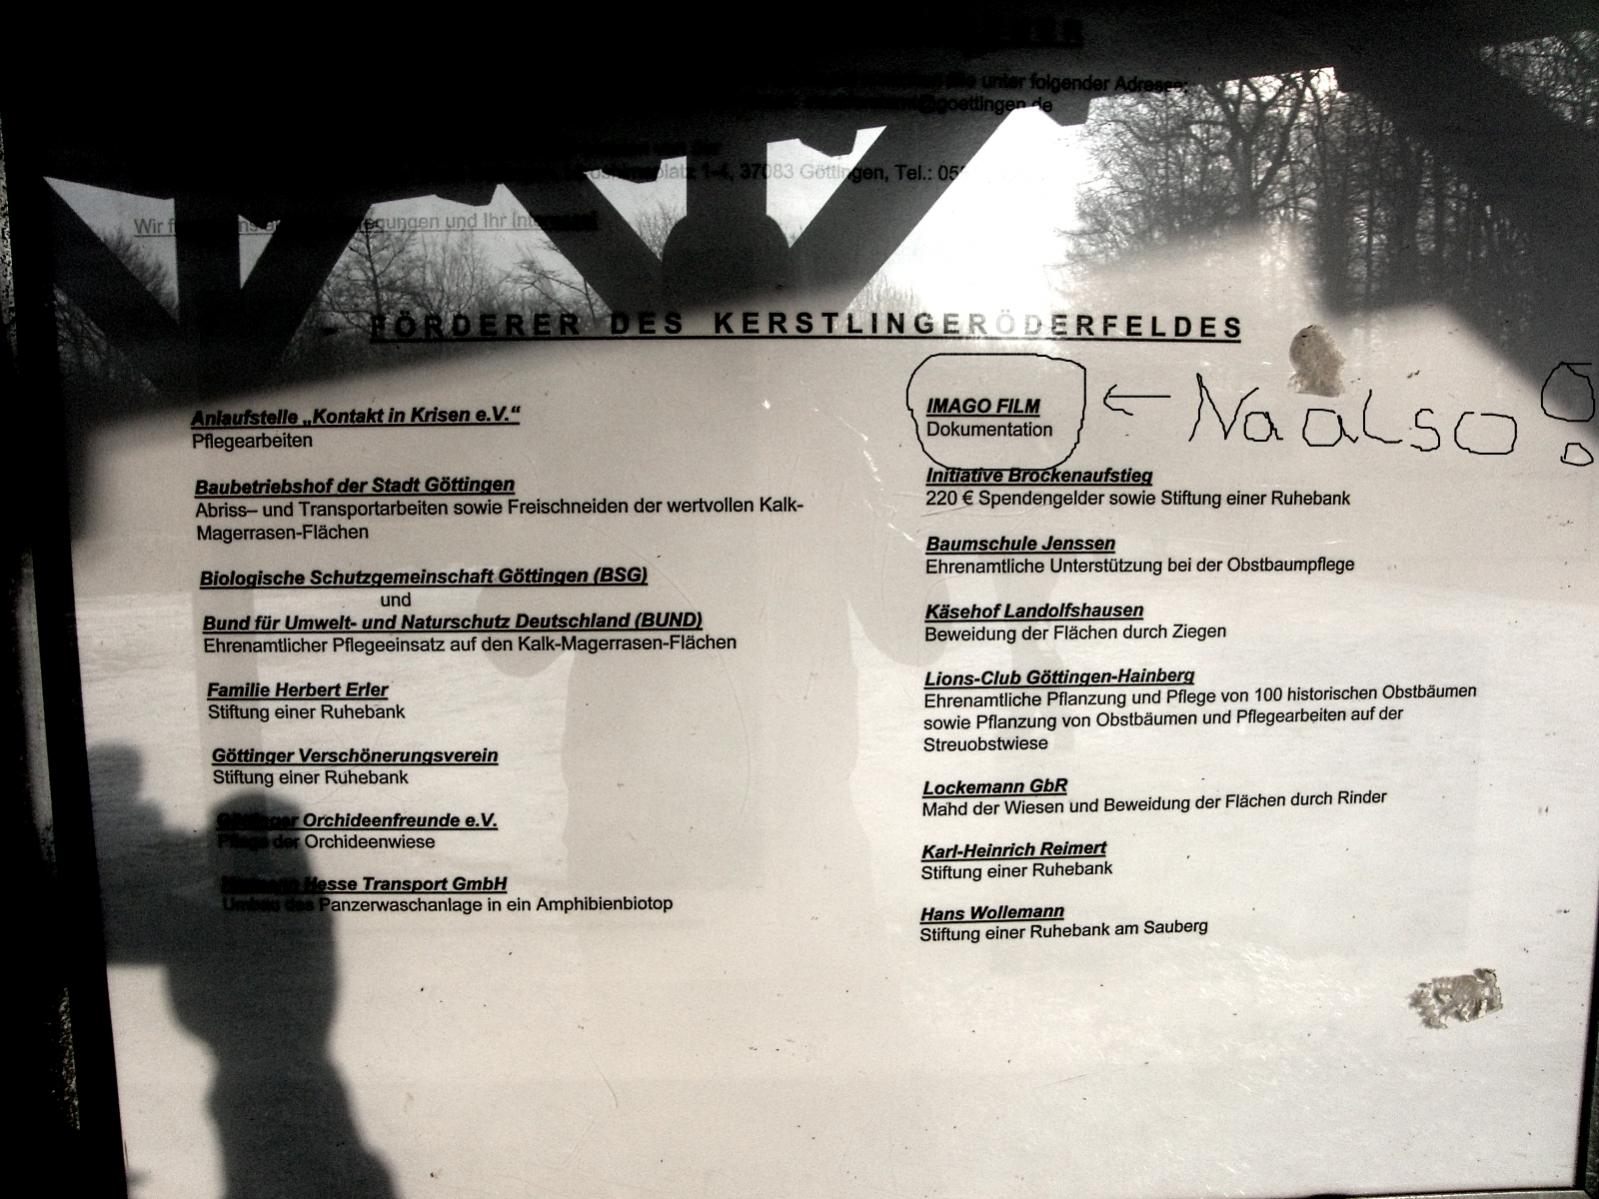 unter folgender Adresse:
@goettingen.de
1-4, 37083 Göttingen, Tel.: 05
Wir und Ihr
FÖRDERER DES KERSTLINGERÖDERFELDES
Anlaufstelle „Kontakt in Krisen e.V.“
Pflegearbeiten
Baubetriebshof der Stadt Göttingen
Abriss– und Transportarbeiten sowie Freischneiden der wertvollen Kalk-
Magerrasen-Flächen
Biologische Schutzgemeinschaft Göttingen (BSG)
und
Bund für Umwelt- und Naturschutz Deutschland (BUND)
Ehrenamtlicher Pflegeeinsatz auf den Kalk-Magerrasen-Flächen
Familie Herbert Erler
Stiftung einer Ruhebank
Göttinger Verschönerungsverein
Stiftung einer Ruhebank
Göttinger Orchideenfreunde e.V.
Pflege der Orchideenwiese
Hesse Transport GmbH
Umbau des Panzerwaschanlage in ein Amphibienbiotop
IMAGO FILM
Dokumentation
← Na also!
Initiative Brockenaufstieg
220 € Spendengelder sowie Stiftung einer Ruhebank
Baumschule Jenssen
Ehrenamtliche Unterstützung bei der Obstbaumpflege
Käsehof Landolfshausen
Beweidung der Flächen durch Ziegen
Lions-Club Göttingen-Hainberg
Ehrenamtliche Pflanzung und Pflege von 100 historischen Obstbäumen
sowie Pflanzung von Obstbäumen und Pflegearbeiten auf der
Streuobstwiese
Lockemann GbR
Mahd der Wiesen und Beweidung der Flächen durch Rinder
Karl-Heinrich Reimert
Stiftung einer Ruhebank
Hans Wollemann
Stiftung einer Ruhebank am Sauberg